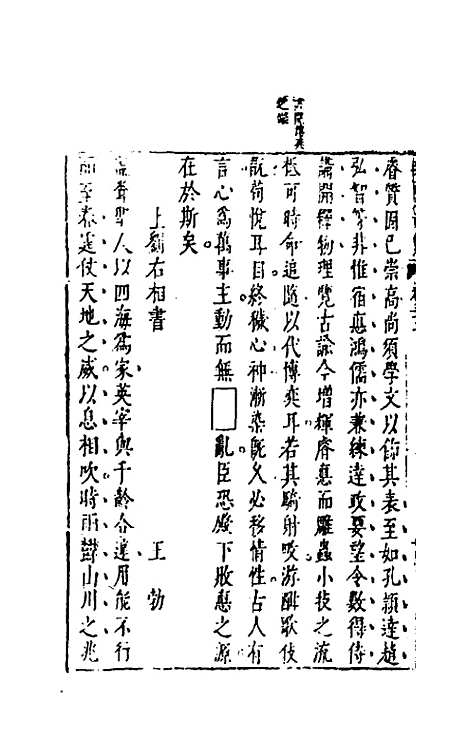 睿質固已崇高尚須學文以飾其表至如孔頴達趙
弘智等非惟宿惪鴻儒亦兼練達政要望令數得侍
講開釋物理覽古諭今增輝睿惪而雕蟲小技之流
秪可時命追隨以代博奕耳若其騎射畋游酣歌伎
翫苟悅耳目終穢心神漸染既久必移情性古人有
言心爲萬事主動而無□亂臣恐殿下敗惪之源
在於斯矣
上劉右相書
王勃
聖人以四海爲家英宰與千齡合運用能不行
而至春霆仗天地之威以息相吹時雨鬱山川之兆